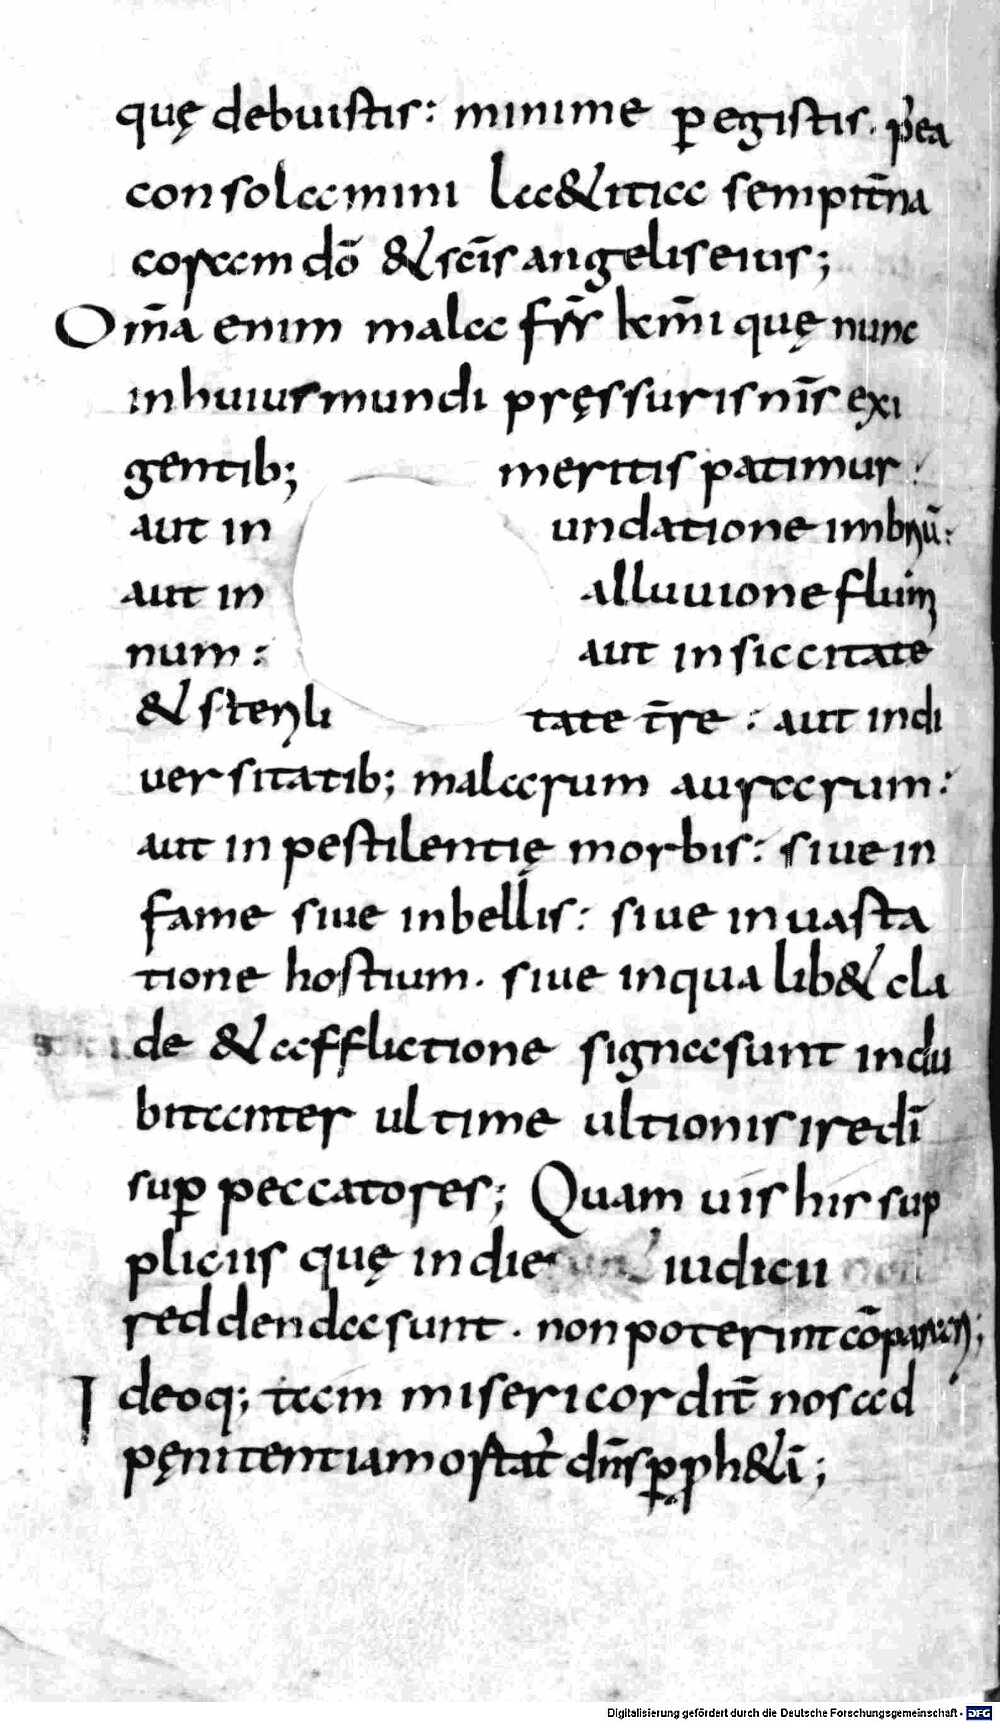 quę debuistis: minime ꝑegistis. p̃ea
consolamini l&aelig;&itia sempit̄na
coram dō & sc̄is angelis eius;
Om̄a enim mala fr̄r km̄i quę nunc
in huius mundi pręssuris nr̄is exi
gentib; meritis patimur:
aut in undatione imbriū:
aut in alluuione flumi
num: aut in siccitate
& sterili tate t̄re: aut in di
uersitatib; malarum aurarum:
aut in pestilentię morbis: siue in
fame siue in bellis: siue in uasta
tione hostium. siue in qua lib& cla
de & afflictione signa sunt indu
bitanter ultime ultionis ire dī
suꝑ peccatores; Quam uis his sup
pliciis quę in die iudicii
reddenda sunt. non poterint cōparari;
Ideoq; tam misericordit̄ nos ad
pęnitentiam ostat̃ dn̄s ꝑ ꝓph&ā;
Digitalisierung gefördert durch die Deutsche Forschungsgemeinschaft - DFG